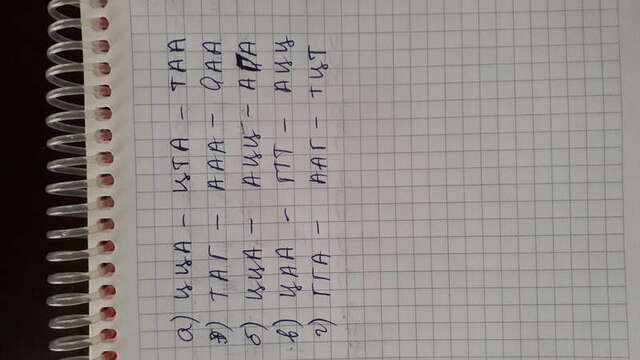 а) ЦЦА – ЦТА – ТАА
д) ТАГ – ААА – ОАА
б) ЦЦА – АЦЦ – АГА
в) ЦАА – ГГТ – АЦЦ
г) ГГА – ААГ – ТЦТ